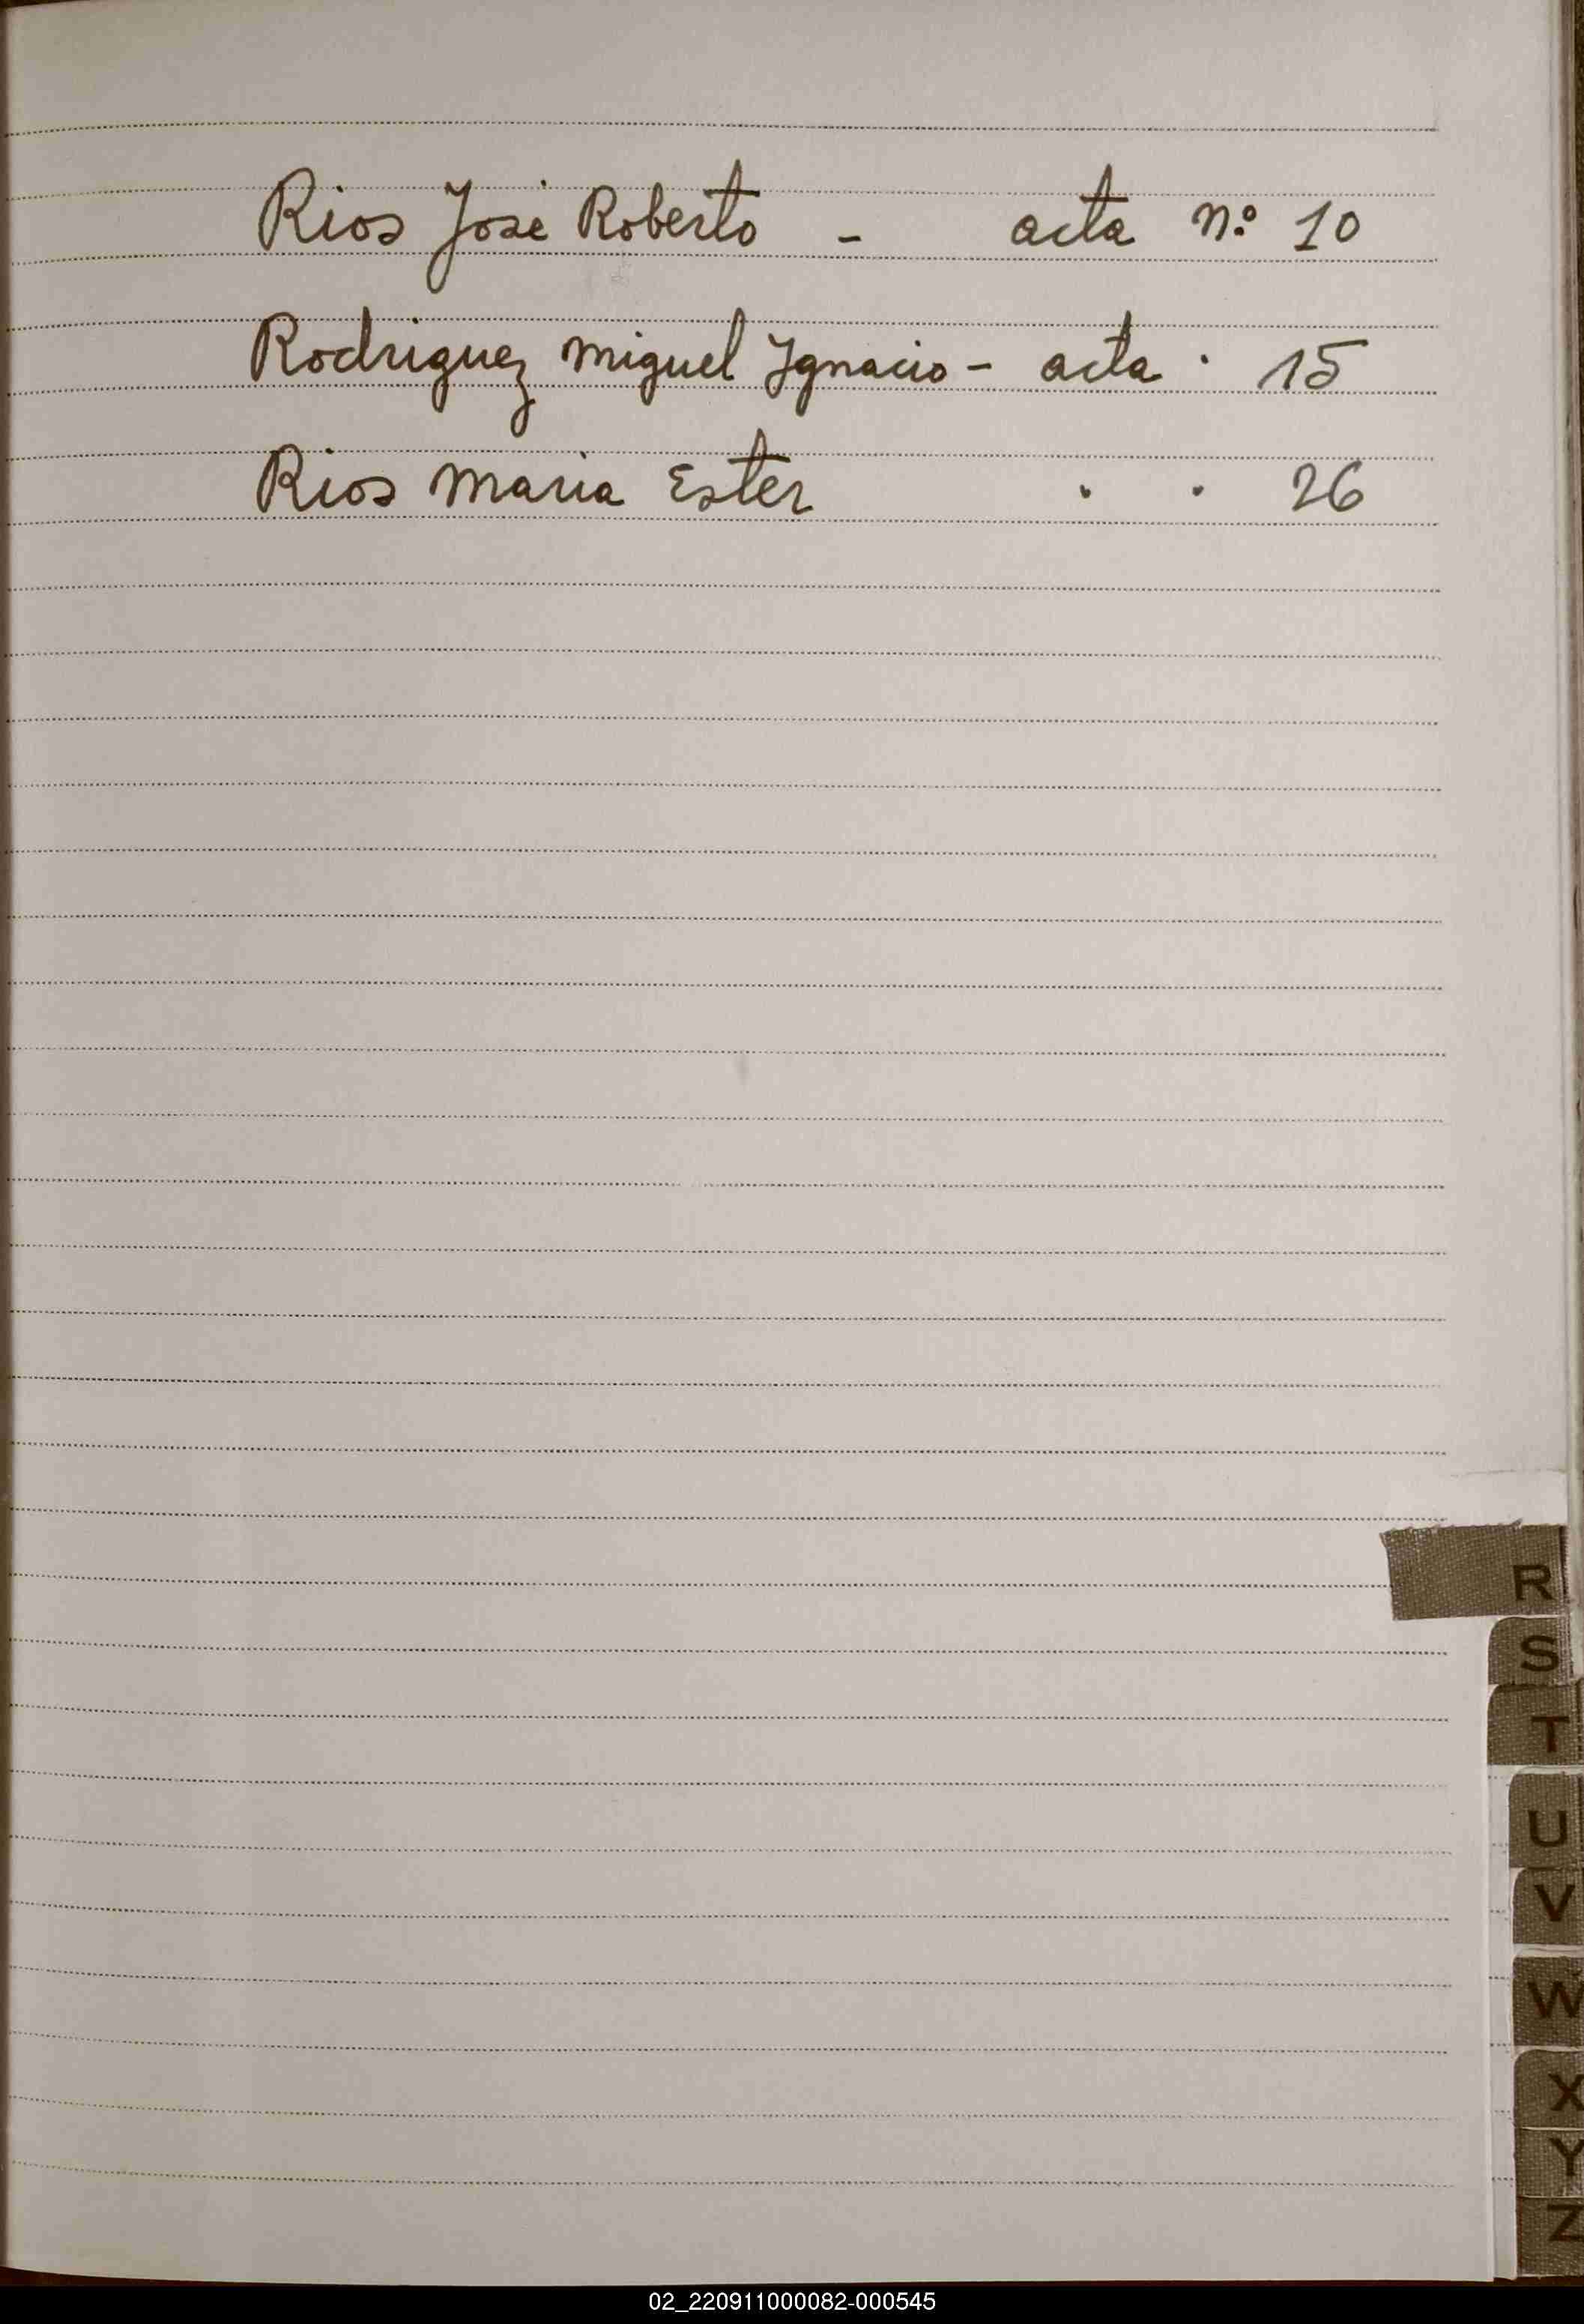 Rios José Roberto - acta n.º 10
Rodriguez Miguel Ignacio - acta · 15
Rios Maria Ester · · 26
R
S
T
U
V
W
X
Y
Z
02_220911000082-000545